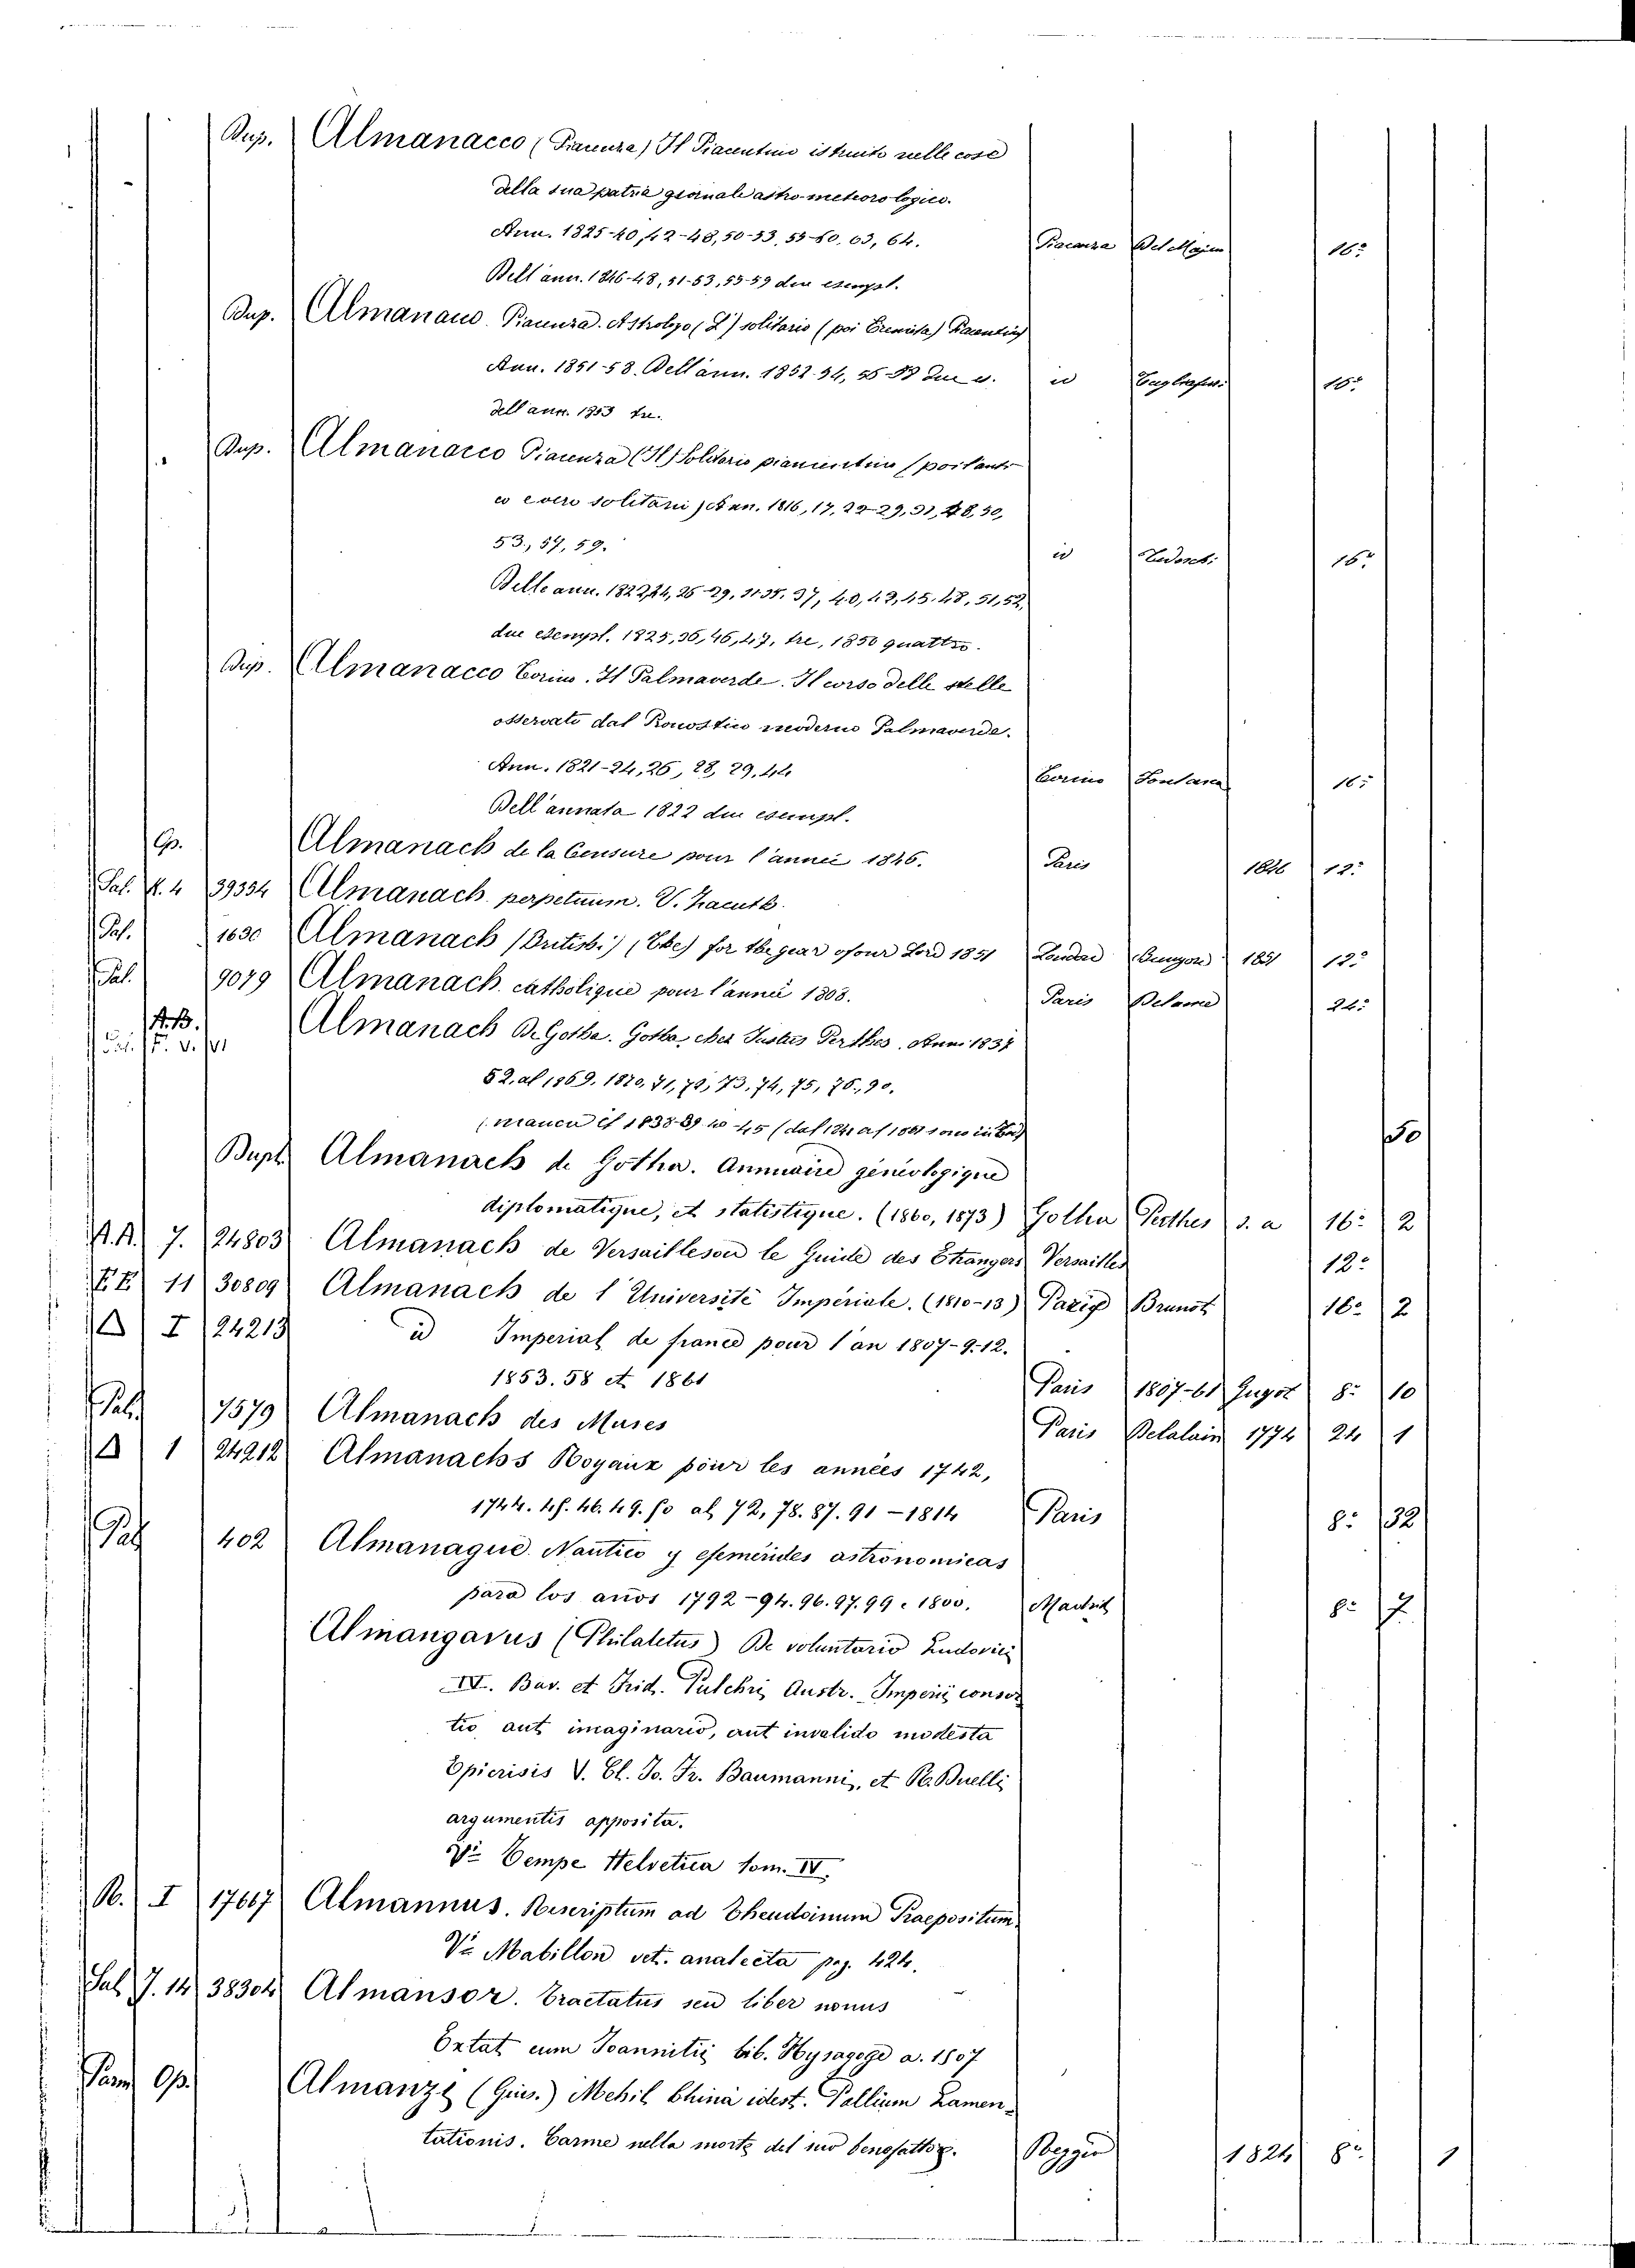 Dup. Almanacco (Piacenza) Il Piacentino istruito nelle cose
della sua patria giornale astro-meteorologico.
Ann. 1825-40, 42-48, 50-53, 55-60. 63, 64. Piacenza Del Majno 16º
Dell'ann. 1846-48, 51-53, 55-59 due esempl.
Dup. Almanacco Piacenza. Astrologo (L') solitario (poi Eremita) Piacentino
Ann. 1851-58. Dell'ann. 1852. 54, 56 due e. id 16º
dell'ann. 1853 tre.
Dup. Almanacco Piacenza (Il) Solitario piacentino (poi tanti
e veri solitari) Ann. 1816, 17, 22-29, 31, 48, 50,
53, 57, 59. id Tedeschi 16º
Delle ann. 1822, 24, 26-29, 31-35. 37, 40, 42, 45. 48, 51, 52,
due esempl. 1825, 36, 46, 47, tre, 1850 quattro.
Dup. Almanacco Torino. Il Palmaverde. Il corso delle stelle
osservato dal moderno Palmaverde.
Ann. 1821-24, 26, 28, 29, 44 Torino Fontana 16º
Dell'annata 1822 due esempl.
Op. Almanach de la Censure pour l'année 1826. Paris 1826 12º
Pal. K. 4 39334 Almanach perpetuum. V. Zacuth.
Pal. 1630 Almanach (British) (The) for the year of our Lord 1851 London 1851 12º
Pal. 9079 Almanach catholique pour l'année 1808. Paris 24º
A.B. Almanach De Gotha. Gotha, chez Justus Perthes. Ann. 1837
52. al 1869. 1870, 71, 72, 73, 74, 75, 76, 90. 50
Dupl. Almanach de Gotha. Annuaire généologique
diplomatique, et statistique. (1860, 1873) Gotha Perthes s. a 16º 2
A.A. 7. 24803 Almanach de Versailles ou le Guide des Etrangers Versailles 12º
E.E. 11 30809 Almanach de l'Université Impériale. (1810-13) Parigi Brunot 16º 2
I 24213 id Imperial de france pour l'an 1807-9-12.
1853. 58 et 1861 Paris 1807-61 Guyot 8º 10
Pal. 7579 Almanach des Muses Paris Delalain 1774 24 1
1 24212 Almanachs Royaux pour les années 1742,
1744. 45. 46. 49. 50 al 72, 78. 87. 91-1814 Paris 8º 32
Pal 402 Almanaque Nautico y efemerides astronomicas
para los años 1792-94. 96. 97. 99 e 1800. Madrid 8º 7
Almangavus (Philaletus) De voluntario Ludovici
IV. Bav. et Frid. Pulchri Austr. Imperii consor
tio aut imaginario, aut invalido modesta
Epicrisis V. Cl. Jo. Fr. Baumanni, et P. Buelli
argumentis apposita.
Vi Tempe Helvetica tom. IV.
R. I 17667 Almannus. Rescriptum ad Theudoinum Praepositum
Vi Mabillon vet. analecta pag. 424.
Sal J. 14 38304 Almansor. Tractatus seu liber nonus
Extat cum Joannitii lib. Hysagoge a. 1507
Parm Op. Almanzi (Gius.) Mehil Chinà idest. Pallium Lamen-
tationis. Carme nella morte del suo benefattore. Reggio 1824 8º 1